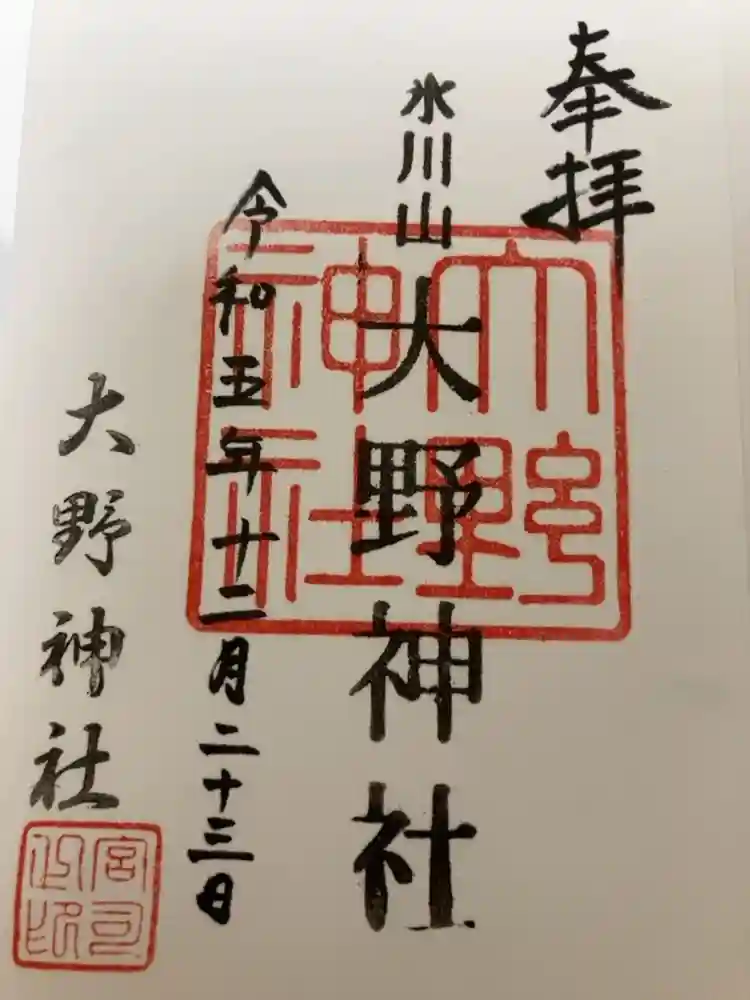 奉拝
氷川山
大野神社
令和五年十二月二十三日
大野神社
大野
神社
宮司
之印